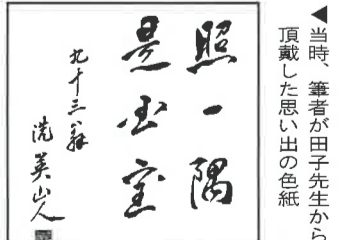 ◀当時、筆者が田子先生から
頂戴した思い出の色紙
照一隅
是国宝
九十三翁
山人